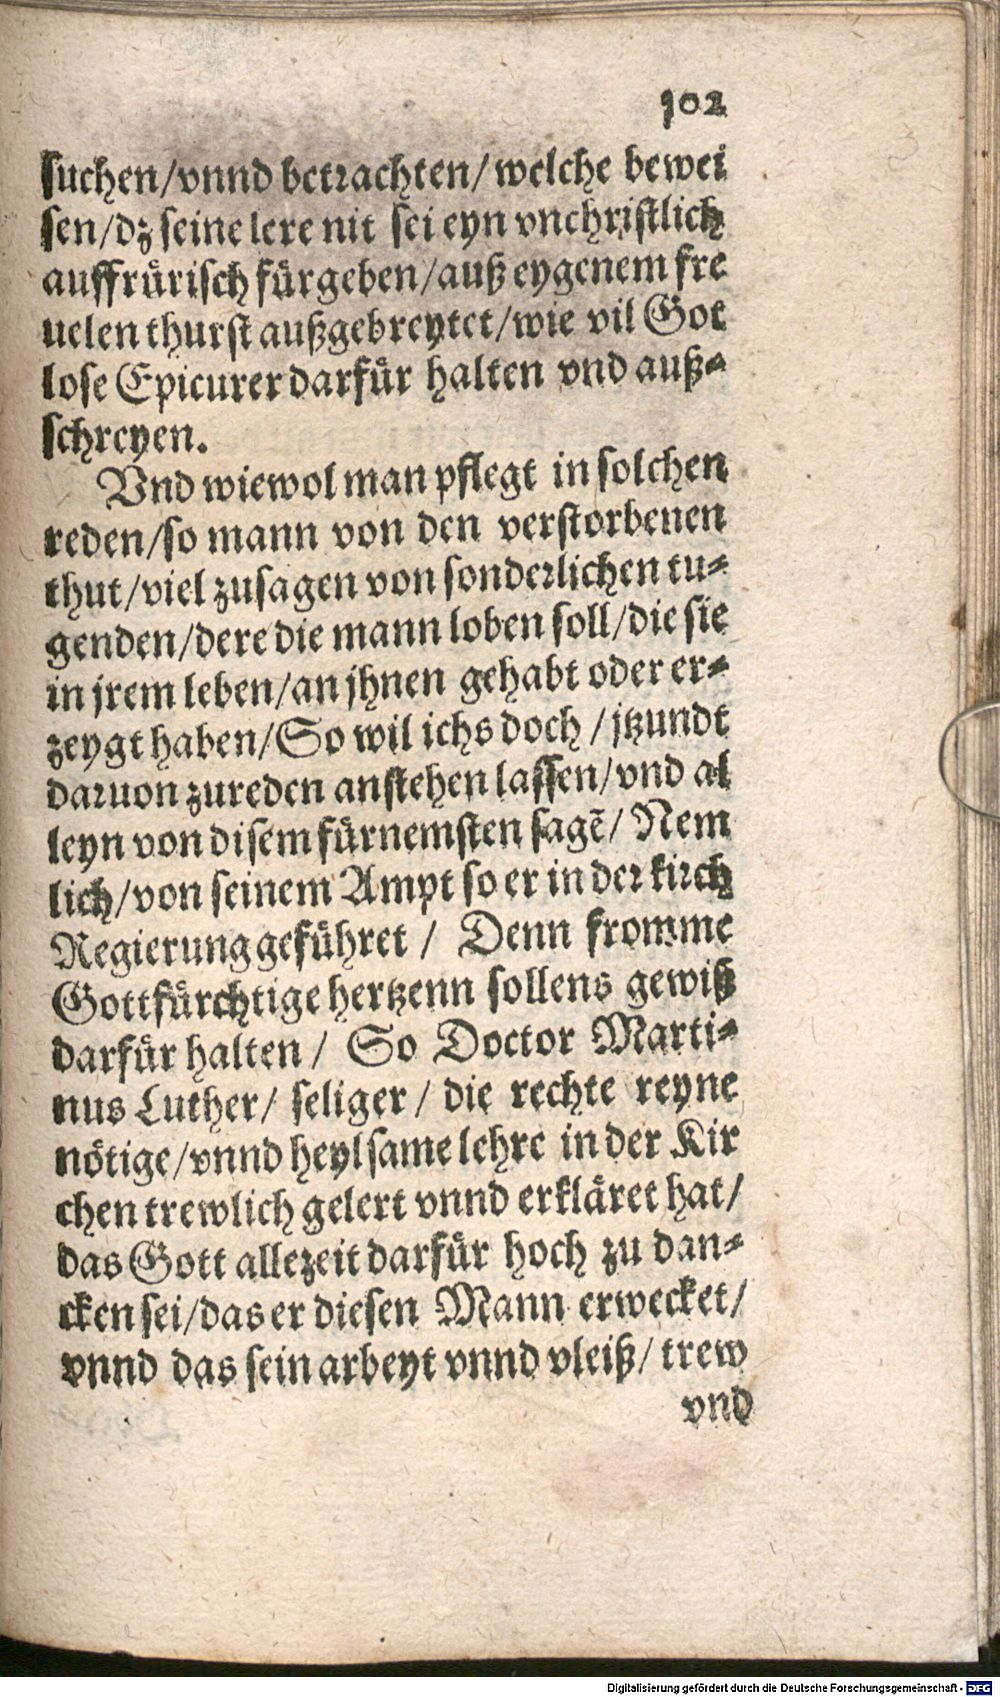 102
suchen/vnnd betrachten/ welche bewei
sen/dz seine lere nit sei eyn vnchristlich
auffrürisch fürgeben/auß eygenem fre
uelen thurst außgebreytet/wie vil Got
lose Epicurer darfür halten vnd auß⸗
schreyen.
Vnd wiewol man pflegt in solchen
reden/so mann von den verstorbenen
thut/viel zusagen von sonderlichen tu⸗
genden/dere die mann loben soll/die sie
in jrem leben/an jhnen gehabt oder er⸗
zeygt haben/So wil ichs doch / jtzundt
daruon zureden anstehen lassen/vnd al
leyn von disem fürnemsten sagē/ Nem
lich/von seinem Ampt so er in der kirch
Regierung geführet / Denn fromme
Gottfürchtige hertzenn sollens gewiß
darfür halten / So Doctor Marti⸗
nus Luther/ seliger / die rechte reyne
nötige/vnnd heylsame lehre in der Kir
chen trewlich gelert vnnd erkläret hat/
das Gott allezeit darfür hoch zu dan⸗
cken sei/das er diesen Mann erwecket/
vnnd das sein arbeyt vnnd vleiß/ trew
vnd
Digitalisierung gefördert durch die Deutsche Forschungsgemeinschaft - DFG